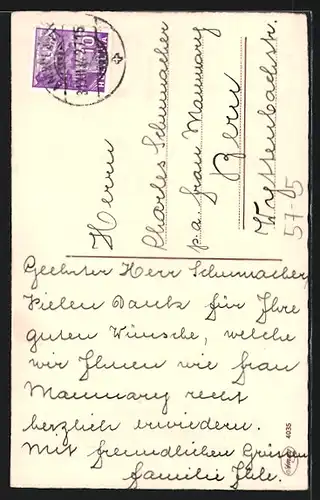 Herrn
Charles Schumacher
p.a. Frau Mammary
Bern
Wyttenbachstr.
57-15
Geehrter Herr Schumacher,
Vielen Dank für Ihre
guten Wünsche, welche
wir Ihnen wie Frau
Mammary recht
herzlich erwiedern.
Mit freundlichen Grüssen
Familie
4035